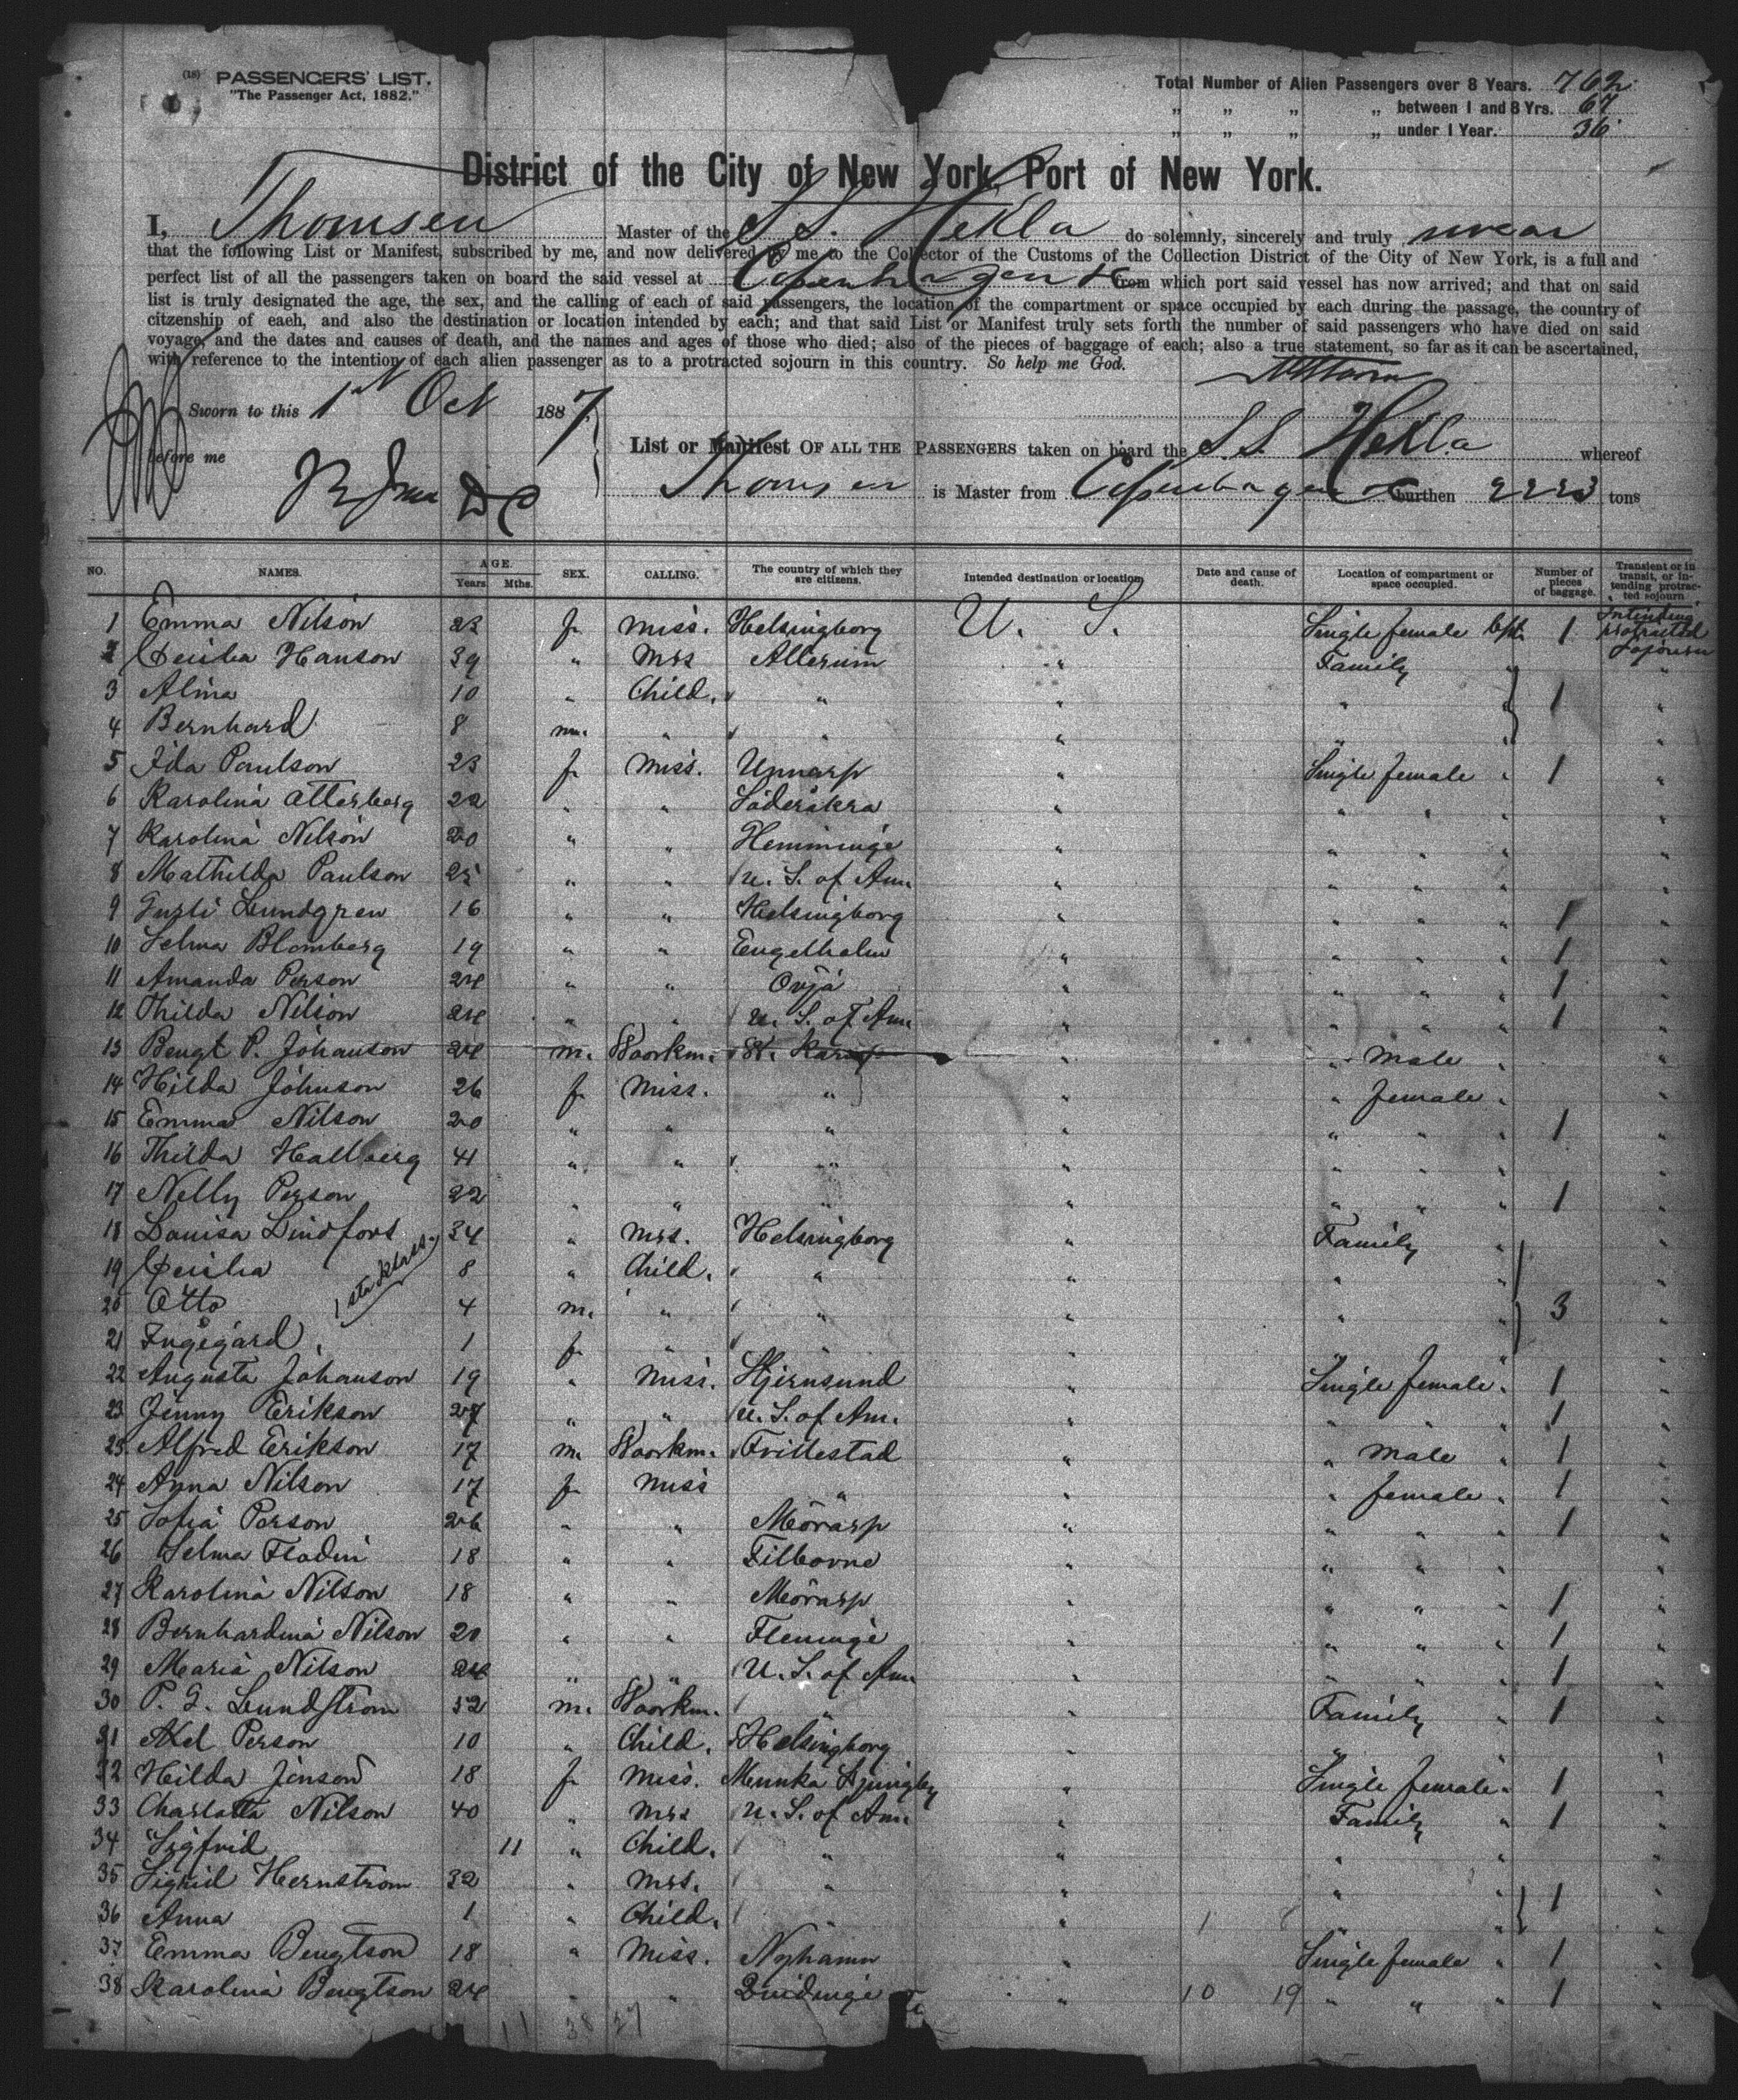 (18) PASSENGERS' LIST.
"The Passenger Act, 1882."
Total Number of Alien Passengers over 8 Years. 762
" " " " between 1 and 8 Yrs. 67
" " " " under 1 Year. 36
District of the City of New York, Port of New York.
I, Thomsen Master of the S.S. Hekla do solemnly, sincerely and truly swear
that the following List or Manifest, subscribed by me, and now delivered by me to the Collector of the Customs of the Collection District of the City of New York, is a full and
perfect list of all the passengers taken on board the said vessel at Copenhagen from which port said vessel has now arrived; and that on said
list is truly designated the age, the sex, and the calling of each of said passengers, the location of the compartment or space occupied by each during the passage, the country of
citzenship of eaeh, and also the destination or location intended by each; and that said List or Manifest truly sets forth the number of said passengers who have died on said
voyage, and the dates and causes of death, and the names and ages of those who died; also of the pieces of baggage of each; also a true statement, so far as it can be ascertained,
with reference to the intention of each alien passenger as to a protracted sojourn in this country. So help me God.
Sworn to this 1st Oct 1887
before me
List or Manifest OF ALL THE PASSENGERS taken on board the S.S. Hekla whereof
Thomsen is Master from Copenhagen burthen 2223 tons
NO. NAMES. AGE. Years. Mths. SEX. CALLING. The country of which they are citizens. Intended destination or location. Date and cause of death. Location of compartment or space occupied. Number of pieces of baggage. Transient or in transit, or intending protracted sojourn
1 Emma Nilson 23 f. Miss. Helsingborg U. S. Single female 1 Intending protracted sojourn
2 Cecilia Hanson 39 " Mrs Allerum " Family " "
3 Alma 10 " Child. " " " " 1 "
4 Bernhard 8 m. " " " " " "
5 Ida Paulson 23 f. Miss. Unnarp " Single female " 1 "
6 Karolina Atterberg 22 " " Söderåkra " " " " "
7 Karolina Nilson 20 " " Hemminge " " " " "
8 Mathilda Paulson 25 " " U. S. of Am. " " " " "
9 Gusti Lundgren 16 " " Helsingborg " " " " 1 "
10 Selma Blomberg 19 " " Engelholm " " " " 1 "
11 Amanda Person 24 " " " " " " 1 "
12 Thilda Nilson 24 " " U. S. of Am. " " " " 1 "
13 Bengt P. Johanson 24 m. Woorkm. W. Karup " " Male " "
14 Hilda Johnson 26 f. Miss. " " " female " "
15 Emma Nilson 20 " " " " " " " 1 "
16 Thilda Hallberg 41 " " " " " " " "
17 Nelly Person 22 " " " " " " " 1 "
18 Louisa Lindfors 34 " Mrs. Helsingborg " Family " "
19 Cecilia 8 " Child. " " " " "
20 Otto 4 m. " " " " " 3 "
21 Ingegärd 1 f. " " " " " "
22 Augusta Johanson 19 " Miss. Hjernsund " Single female " 1 "
23 Jenny Erikson 27 " " U. S. of Am. " " " " 1 "
23 Alfred Erikson 17 m. Woorkm. Frillestad " " Male " 1 "
24 Anna Nilson 17 f. Miss " " " female " 1 "
25 Sofia Person 26 " " Mörarp " " " " 1 "
26 Selma Flodin 18 " " Filborne " " " " "
27 Karolina Nilson 18 " " Mörarp " " " " 1 "
28 Bernhardina Nilson 20 " " Fleninge " " " " 1 "
29 Maria Nilson 24 " " U. S. of Am. " " " " 1 "
30 P. G. Lundstrom 52 m. Woorkm. " " Family " 1 "
31 Axel Person 10 " Child. Helsingborg " " " "
32 Hilda Jönson 18 f. Miss. Munka Ljungby " Single female " 1 "
33 Charlotta Nilson 40 " Mrs U. S. of Am. " Family " 1 "
34 Sigfrid 11 " Child. " " " " "
35 Sigrid Hernstrom 32 " Mrs. " " " " 1 "
36 Anna 1 " Child. " " " " "
37 Emma Bengtson 18 " Miss. Nyhamn " Single female " 1 "
38 Karolina Bengtson 24 " " Quidinge " 10 19 " " " 1 "
11 38 27